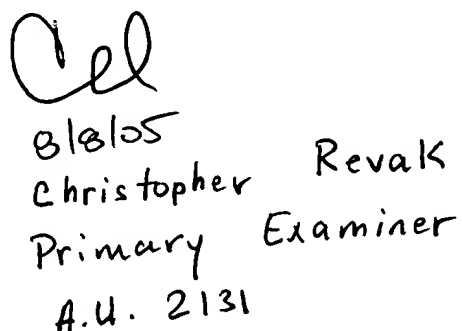 8/8/05
Christopher Revak
Primary Examiner
A.U. 2131